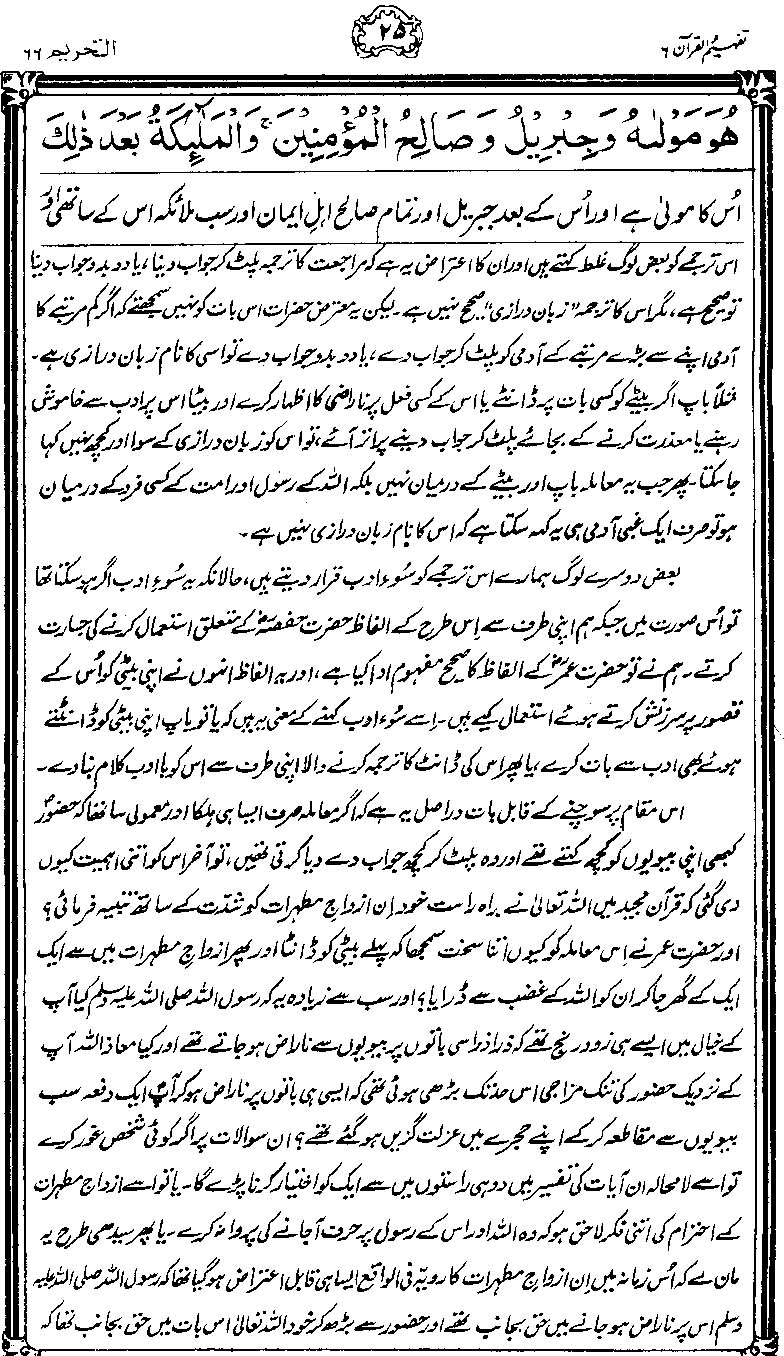 تفہیم القرآن ۶
۲۵
التحریم ۶۶
هُوَ مَوْلٰىهُ وَجِبْرِيْلُ وَصَالِحُ الْمُؤْمِنِيْنَ ۚ وَالْمَلٰٓئِكَةُ بَعْدَ ذٰلِكَ
اُس کا مولیٰ ہے اور اُس کے بعد جبریل اور تمام صالح اہلِ ایمان اور سب ملائکہ اس کے ساتھی اور
اس ترجمے کو بعض لوگ غلط کہتے ہیں اور ان کا اعتراض یہ ہے کہ مراجعت کا ترجمہ پلٹ کر جواب دینا، یا دو بدو جواب دینا
تو صحیح ہے، مگر اس کا ترجمہ "زبان درازی" صحیح نہیں ہے۔ لیکن یہ معترض حضرات اس بات کو نہیں سمجھتے کہ اگر کم مرتبے کا
آدمی اپنے سے بڑے مرتبے کے آدمی کو پلٹ کر جواب دے، یا دو بدو جواب دے تو اسی کا نام زبان درازی ہے۔
مثلاً باپ اگر بیٹے کو کسی بات پر ڈانٹے یا اس کے کسی فعل پر ناراضی کا اظہار کرے اور بیٹا اس پر ادب سے خاموش
رہنے یا معذرت کرنے کے بجائے پلٹ کر جواب دینے پر اتر آئے، تو اس کو زبان درازی کے سوا اور کچھ نہیں کہا
جا سکتا۔ پھر جب یہ معاملہ باپ اور بیٹے کے درمیان نہیں بلکہ اللہ کے رسول اور امت کے کسی فرد کے درمیان
ہو تو صرف ایک غبی آدمی ہی یہ کہہ سکتا ہے کہ اس کا نام زبان درازی نہیں ہے۔
بعض دوسرے لوگ ہمارے اس ترجمے کو سُوءِ ادب قرار دیتے ہیں، حالانکہ یہ سُوءِ ادب اگر ہو سکتا تھا
تو اُس صورت میں جبکہ ہم اپنی طرف سے اِس طرح کے الفاظ حضرت حفصہؓ کے متعلق استعمال کرنے کی جسارت
کرتے۔ ہم نے تو حضرت عمرؓ کے الفاظ کا صحیح مفہوم ادا کیا ہے، اور یہ الفاظ انہوں نے اپنی بیٹی کو اُس کے
قصور پر سرزنش کرتے ہوئے استعمال کیے ہیں۔ اسے سُوءِ ادب کہنے کے معنی یہ ہیں کہ یا تو باپ اپنی بیٹی کو ڈانٹتے
ہوئے بھی ادب سے بات کرے، یا پھر اس کی ڈانٹ کا ترجمہ کرنے والا اپنی طرف سے اس کو با ادب کلام بنا دے۔
اس مقام پر سوچنے کے قابل بات دراصل یہ ہے کہ اگر معاملہ صرف ایسا ہی ہلکا اور معمولی سا تھا کہ حضورؐ
کبھی اپنی بیویوں کو کچھ کہتے تھے اور وہ پلٹ کر کچھ جواب دے دیا کرتی تھیں، تو آخر اس کو اتنی اہمیت کیوں
دی گئی کہ قرآن مجید میں اللہ تعالیٰ نے براہ راست خود اِن ازواجِ مطہرات کو شدّت کے ساتھ تنبیہ فرمائی؟
اور حضرت عمر نے اِس معاملہ کو کیوں اتنا سخت سمجھا کہ پہلے بیٹی کو ڈانٹا اور پھر ازواجِ مطہرات میں سے ایک
ایک کے گھر جا کر ان کو اللہ کے غضب سے ڈرایا؟ اور سب سے زیادہ یہ کہ رسول اللہ صلی اللہ علیہ وسلم کیا آپ
کے خیال میں ایسے ہی زود رنج تھے کہ ذرا ذرا سی باتوں پر بیویوں سے ناراض ہو جاتے تھے اور کیا معاذ اللہ آپ
کے نزدیک حضور کی تنک مزاجی اس حد تک بڑھی ہوئی تھی کہ ایسی ہی باتوں پر ناراض ہو کر آپؐ ایک دفعہ سب
بیویوں سے مقاطعہ کر کے اپنے حجرے میں عزلت گزیں ہو گئے تھے؟ ان سوالات پر اگر کوئی شخص غور کرے
تو اسے لا محالہ ان آیات کی تفسیر میں دو ہی راستوں میں سے ایک کو اختیار کرنا پڑے گا۔ یا تو اسے ازواجِ مطہرات
کے احترام کی اتنی فکر لاحق ہو کہ وہ اللہ اور اس کے رسول پر حرف آ جانے کی پروا نہ کرے۔ یا پھر سیدھی طرح یہ
مان لے کہ اُس زمانہ میں اِن ازواجِ مطہرات کا رویّہ فی الواقع ایسا ہی قابل اعتراض ہو گیا تھا کہ رسول اللہ صلی اللہ علیہ
وسلم اس پر ناراض ہو جانے میں حق بجانب تھے اور حضور سے بڑھ کر خود اللہ تعالیٰ اس بات میں حق بجانب تھا کہ